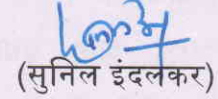 (सुनिल इंदलकर)